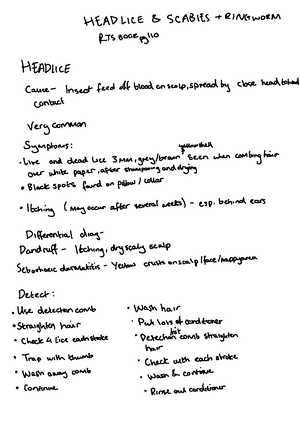 HEADLICE & SCABIES + RINGWORM
RTS BOOK pg 110
HEADLICE
Cause - Insect feed off blood on scalp, spread by close head to head
contact
Very common
Symptoms:
yellow shell
• Live and dead lice 3mm, grey/brown seen when combing hair
over white paper, after shampooing and drying
• Black spots found on pillow / collar
• Itching (may occur after several weeks) - esp. behind ears
Differential diag -
Dandruff - Itching, dry scaly scalp
Seborrhoeic dermatitis - Yellow crusts on scalp / face / nappy area
Detect:
• Use detection comb
• Straighten hair
• Check 4 lice each stroke
• Trap with thumb
• Wash away comb
• Continue
• Wash hair
• Put lots of conditioner
• Detection comb straighten
hair
• Check with each stroke
• Wash & continue
• Rinse out conditioner